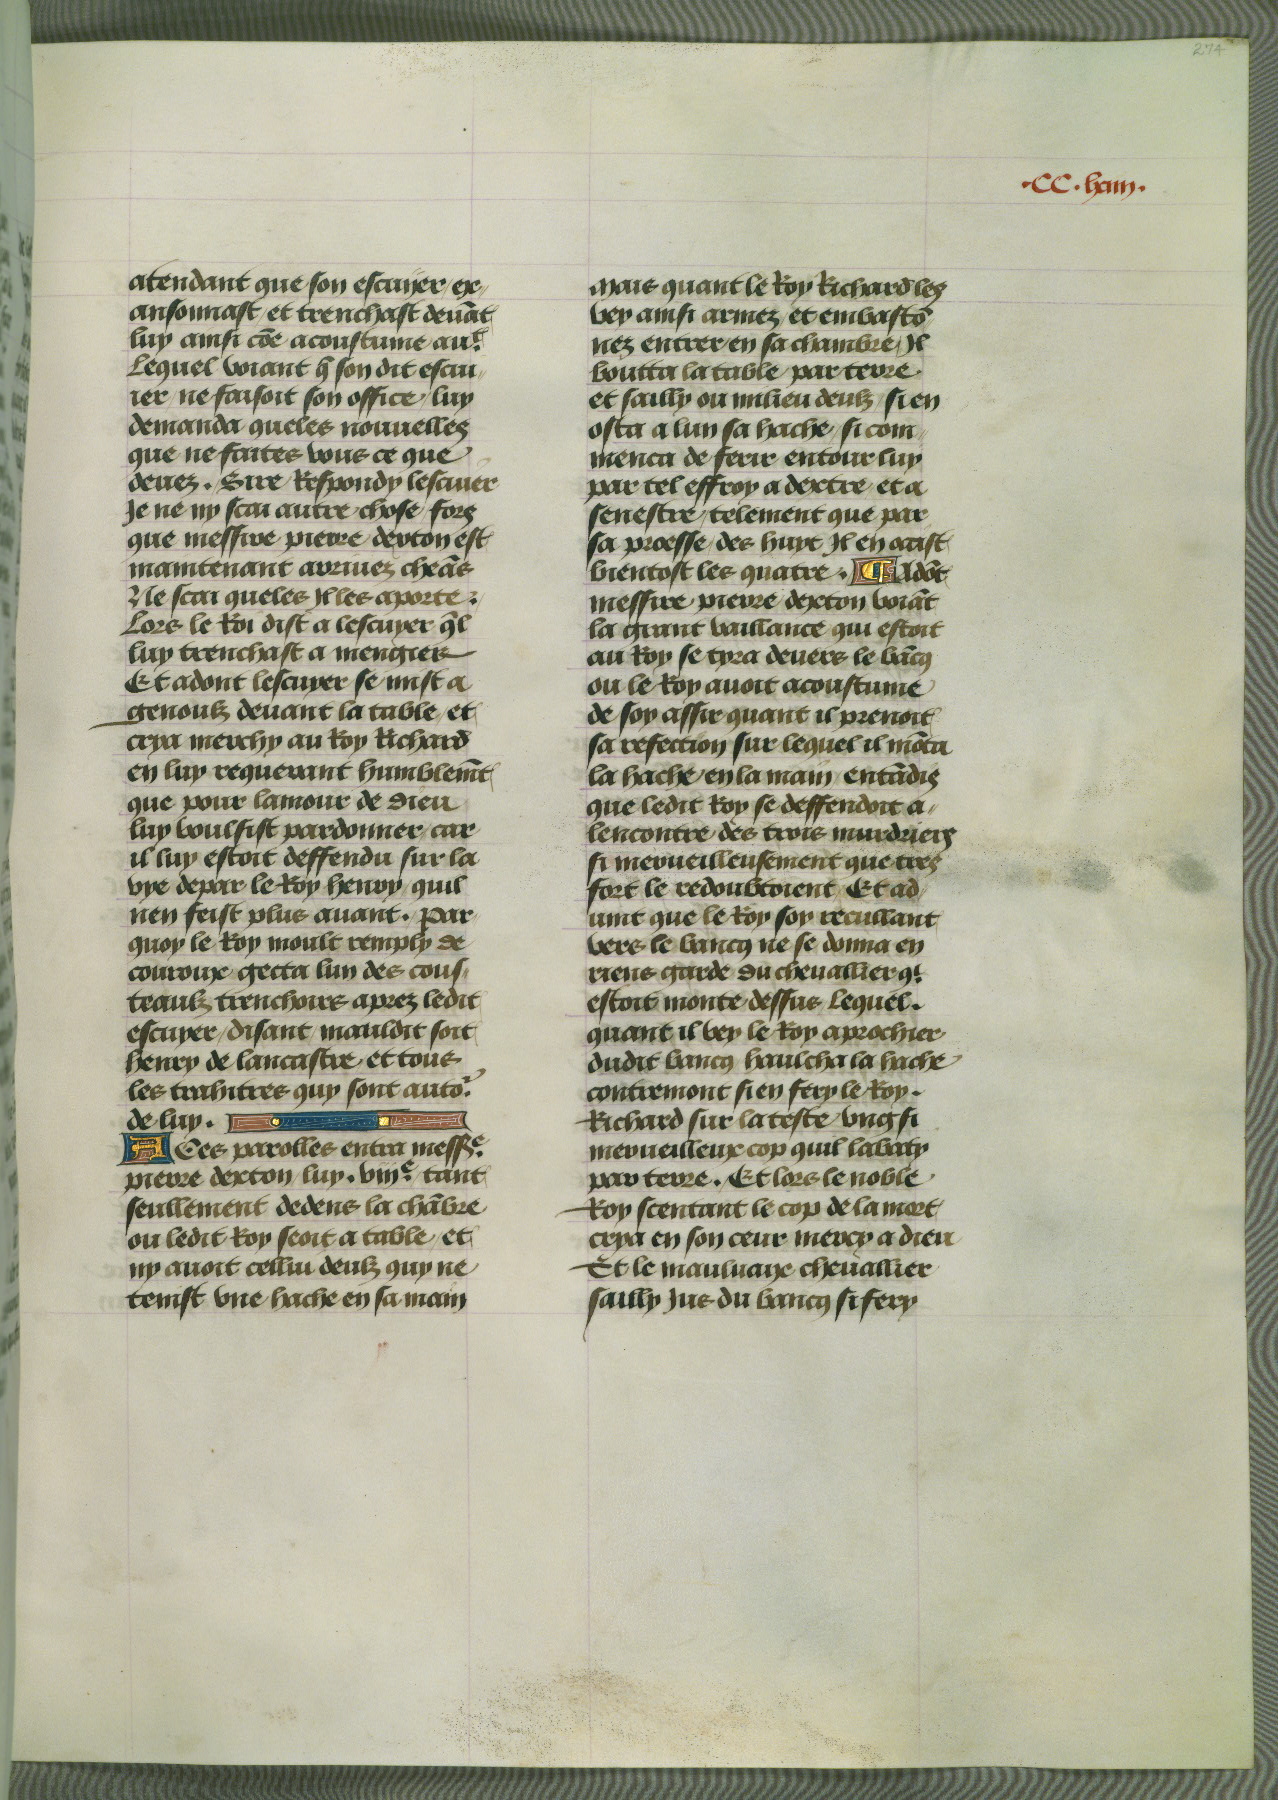 274
·CC·lxxiiii·
atendant que son escuyer ex-
ansonnast et trenchast devāt
luy ainsi cōe acoustume avt
Lequel voiant q̄ son dit escui-
ier ne faisoit son office luy
demanda queles nouvelles
que ne faites vous ce que
devez. Sire Respondy lescuier
Je ne ny scai autre chose fors
que messire pierre dexton est
maintenant arrivez cheās
Ne scai queles Il les aporte.
Lors le Roi dist a lescuyer q̄l
luy trenchast a mengier
Et adont lescuyer se mist a
genoulz devant la table et
crya merchy au Roy Richard
en luy requerant humblemēt
que pour lamour de dieu
luy voulsist pardonner car
il luy estoit deffendu sur la
vye depar le Roy henry quil
nen feist plus avant. Par
quoy le Roy moult remply de
courouxe gecta lun des cous-
teaulz trenchoirs aprez ledit
escuyer disant mauldit soit
henry de lancastre et tous
les trahitres quy sont autor
de luy.
A Ces parolles entra messre
pierre dexton luy. viiie tant
seullement dedens la chābre
ou ledit Roy seoit a table et
ny avoit cellui deulz quy ne
tenist vne hache en sa main
Mais quant le Roy Richard les
vey ainsi armez et embastō
nez entrer en sa chambre Il
boutta la table par terre
et sailly ou milieu deulz si en
osta a lun sa hache si com-
menca de ferir entour luy
par tel effroy a dextre et a
senestre telement que par
sa proesse des huyt Il en ocist
bientost les quatre. ¶ Adōt
messire pierre dexton voiāt
la grant vaillance qui estoit
au Roy se tyra devers le bācq
ou le Roy avoit acoustume
de soy assir quant il prenoit
sa refection sur lequel il mōta
la hache en la main entādis
que ledit Roy se deffendoit a-
lencontre des trois murdriers
si merveilleusement que tres
fort le redoubtoient Et ad
uint que le Roy soy recullant
vers le bancq ne se donna en
riens garde du chevallier qi
estoit monte dessus Lequel.
quant il vey le Roy aprochier
dudit bancq haulcha la hache
contremont si en fery le Roy.
Richard sur la teste vng si
merveilleux cop quil labaty
par terre. Et lors le noble
Roy scentant le cop de la mort
crya en son ceur mercy a dieu
Et le mauluaix chevallier
sailly Jus du bancq si fery